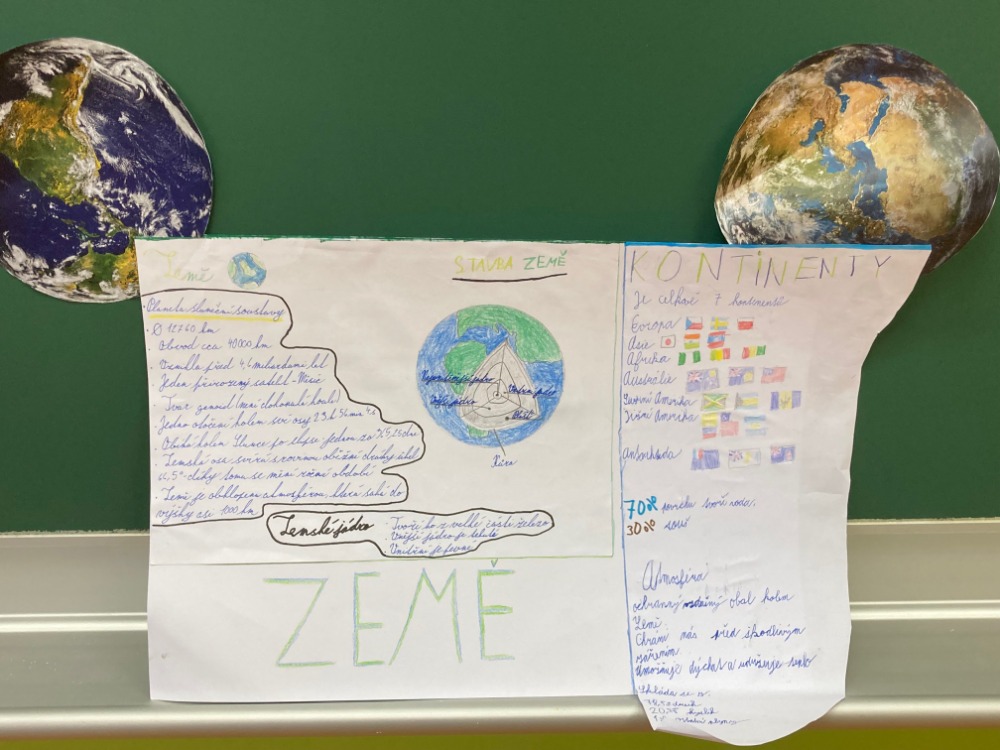 Země
Planeta sluneční soustavy
Ø 12760 km
Obvod cca 40000 km
Vznikla před 4,6 miliardami let
Jeden přirozený satelit - Měsíc
Tvar genoid (není dokonalá koule)
Jedno otočení kolem své osy 23 h 56 min 4 s
Obíhá kolem Slunce po elipse jednou za 365,25 dne
Zemská osa svírá s rovinou oběžné dráhy úhel
díky tomu se mění roční období
Země je obklopena atmosférou, která sahá do
výšky asi 1000 km
Zemské jádro
Tvoří ho z velké části železo
Vnější jádro je tekuté
Vnitřní je pevné
STAVBA ZEMĚ
Vnější jádro
Plášť
Kůra
ZEMĚ
KONTINENTY
Je celkově 7 kontinentů
Evropa
Asie
Afrika
Austrálie
Severní Amerika
Jižní Amerika
Antarktida
70% povrchu tvoří voda.
30% souš
Atmosféra
ochranný obal kolem
Země.
Chrání nás před škodlivým
zářením.
Umožňuje dýchat a udržuje
Skládá se z: